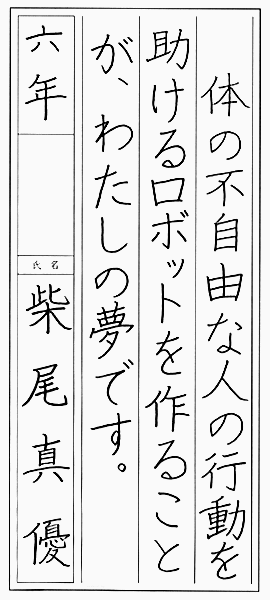 体の不自由な人の行動を
助けるロボットを作ること
が、わたしの夢です。
六年
氏名
柴尾真優